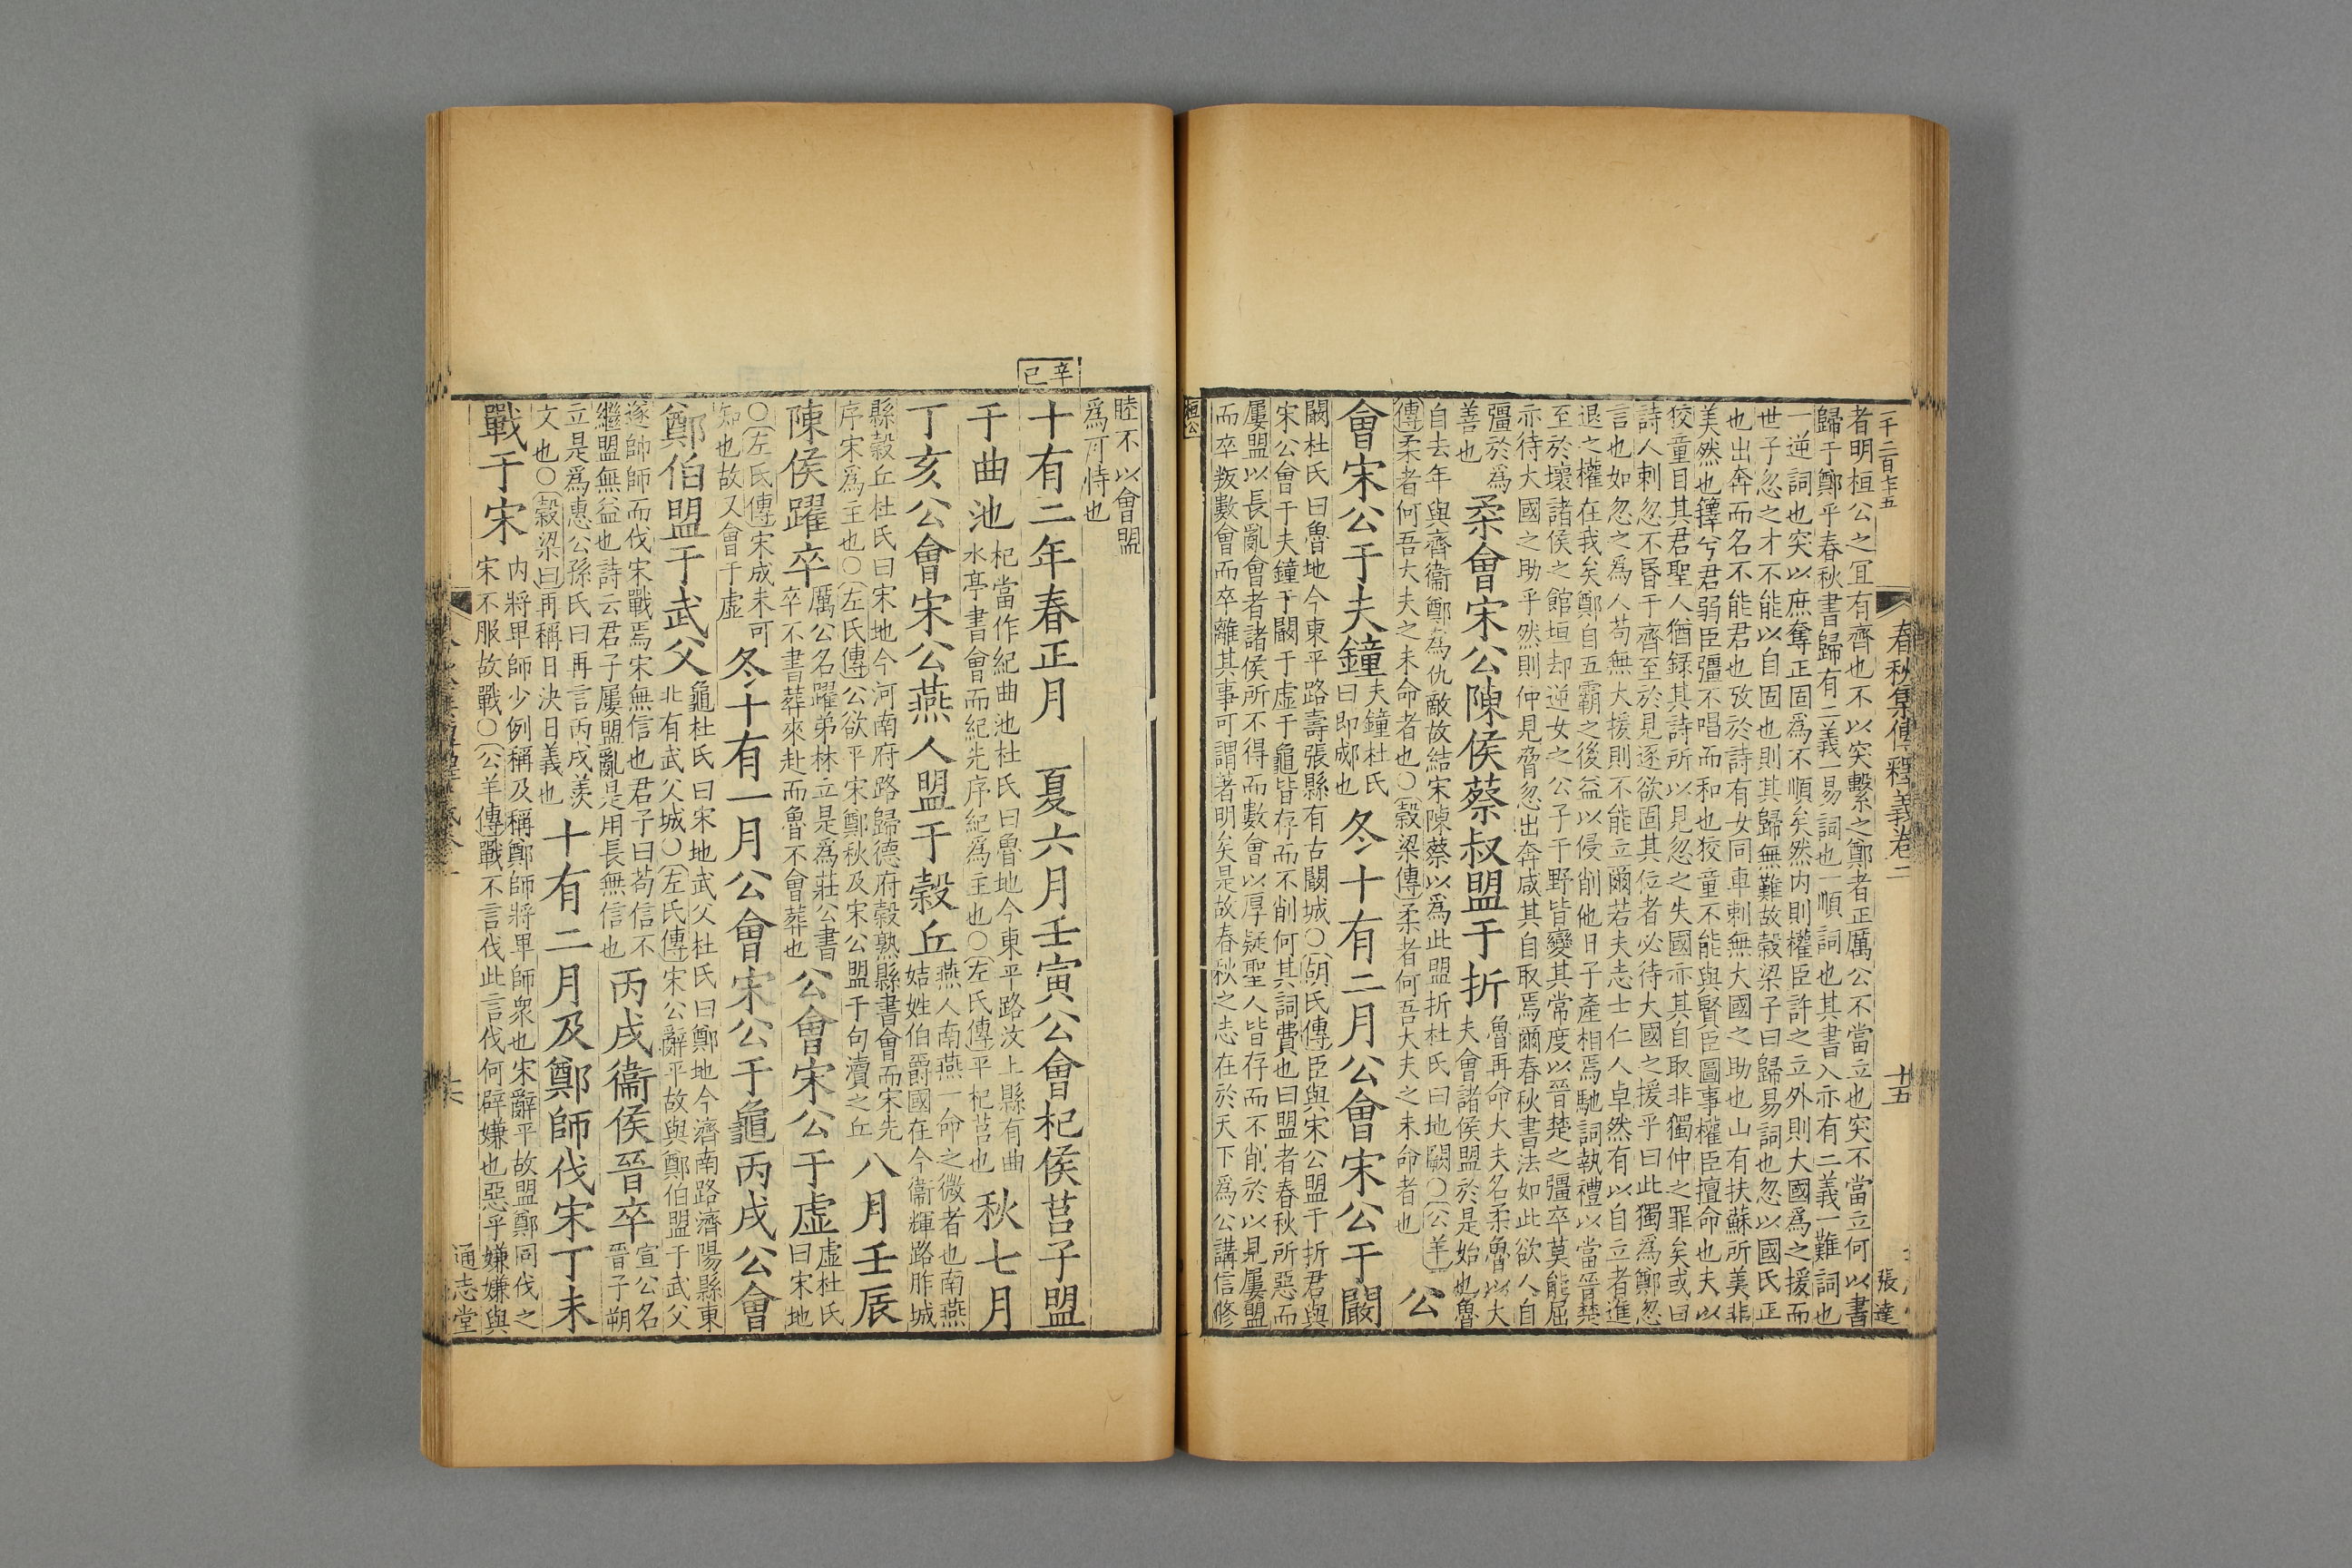 一千二百七十五
春秋集傳釋義卷二
十五
張達
者明桓公之冝有齊也不以突繫之鄭者正厲公不當立也突不當立何以書
歸于鄭乎春秋書歸有二義一易詞也一順詞也其書入亦有二義一難詞也
一逆詞也突以庶奪正固爲不順矣然内則權臣許之立外則大國爲之援而
世子忽之才不能以自固也則其歸無難故榖梁子曰歸易詞也忽以國氏正
也出奔而名不能君也攷於詩有女同車刺無大國之助也山有扶蘇所美非
美然也蘀兮君弱臣彊不唱而和也狡童不能與賢臣圖事權臣擅命也夫以
狡童目其君聖人猶録其詩所以見忽之失國亦其自取非獨仲之罪矣或曰
詩人刺忽不昏于齊至於見逐欲固其位者必待大國之援乎曰此獨爲鄭忽
言也如忽之爲人苟無大援則不能立爾若夫志士仁人卓然有以自立者進
退之權在我矣鄭自五霸之後益以侵削他日子產相焉馳詞執禮以當晉楚
至於壞諸侯之館垣却逆女之公子于野皆變其常度以晉楚之彊卒莫能屈
亦待大國之助乎然則仲見脅忽出奔咸其自取焉爾春秋書法如此欲人自
彊於爲
善也
柔會宋公陳侯蔡叔盟于折
魯再命大夫名柔魯以大
夫會諸侯盟於是始也魯
自去年與齊衞鄭爲仇敵故結宋陳蔡以爲此盟折杜氏曰地闕○公羊
傳柔者何吾大夫之未命者也○榖梁傳柔者何吾大夫之未命者也
公
會宋公于夫鐘
夫鐘杜氏
曰即郕也
冬十有二月公會宋公于闞
闞杜氏曰魯地今東平路壽張縣有古闞城○胡氏傳臣與宋公盟于折君與
宋公會于夫鐘于闞于虚于龜皆存而不削何其詞費也曰盟者春秋所惡而
屢盟以長亂會者諸侯所不得而數會以厚疑聖人皆存而不削於以見屢盟
而卒叛數會而卒離其事可謂著明矣是故春秋之志在於天下爲公講信修
桓公
睦不以會盟
爲可恃也
辛巳
十有二年春正月
夏六月壬寅公會杞侯莒子盟
于曲池
杞當作紀曲池杜氏曰魯地今東平路汶上縣有曲
水亭書會而紀先序紀爲主也○左氏傳平杞莒也
秋七月
丁亥公會宋公燕人盟于榖丘
燕人南燕一命之微者也南燕
姞姓伯爵國在今衞輝路胙城
縣榖丘杜氏曰宋地今河南府路歸德府榖熟縣書會而宋先
序宋爲主也○左氏傳公欲平宋鄭秋及宋公盟于句瀆之丘
八月壬辰
陳侯躍卒
厲公名躍弟林立是爲莊公書
卒不書葬來赴而魯不會葬也
公會宋公于虚
虚杜氏
曰宋地
○左氏傳宋成未可
知也故又會于虚
冬十有一月公會宋公于龜丙戌公會
鄭伯盟于武父
龜杜氏曰宋地武父杜氏曰鄭地今濟南路濟陽縣東
北有武父城○左氏傳宋公辭平故與鄭伯盟于武父
遂帥師而伐宋戰焉宋無信也君子曰苟信不
繼盟無益也詩云君子屢盟亂是用長無信也
丙戌衞侯晉卒
宣公名
晉子朔
立是爲惠公孫氏曰再言丙戌羨
文也○榖梁曰再稱日決日義也
十有二月及鄭師伐宋丁未
戰于宋
内將畢師少例稱及稱鄭師將畢師衆也宋辭平故盟鄭同伐之
宋不服故戰○公羊傳戰不言伐此言伐何辟嫌也惡乎嫌嫌與
通志堂